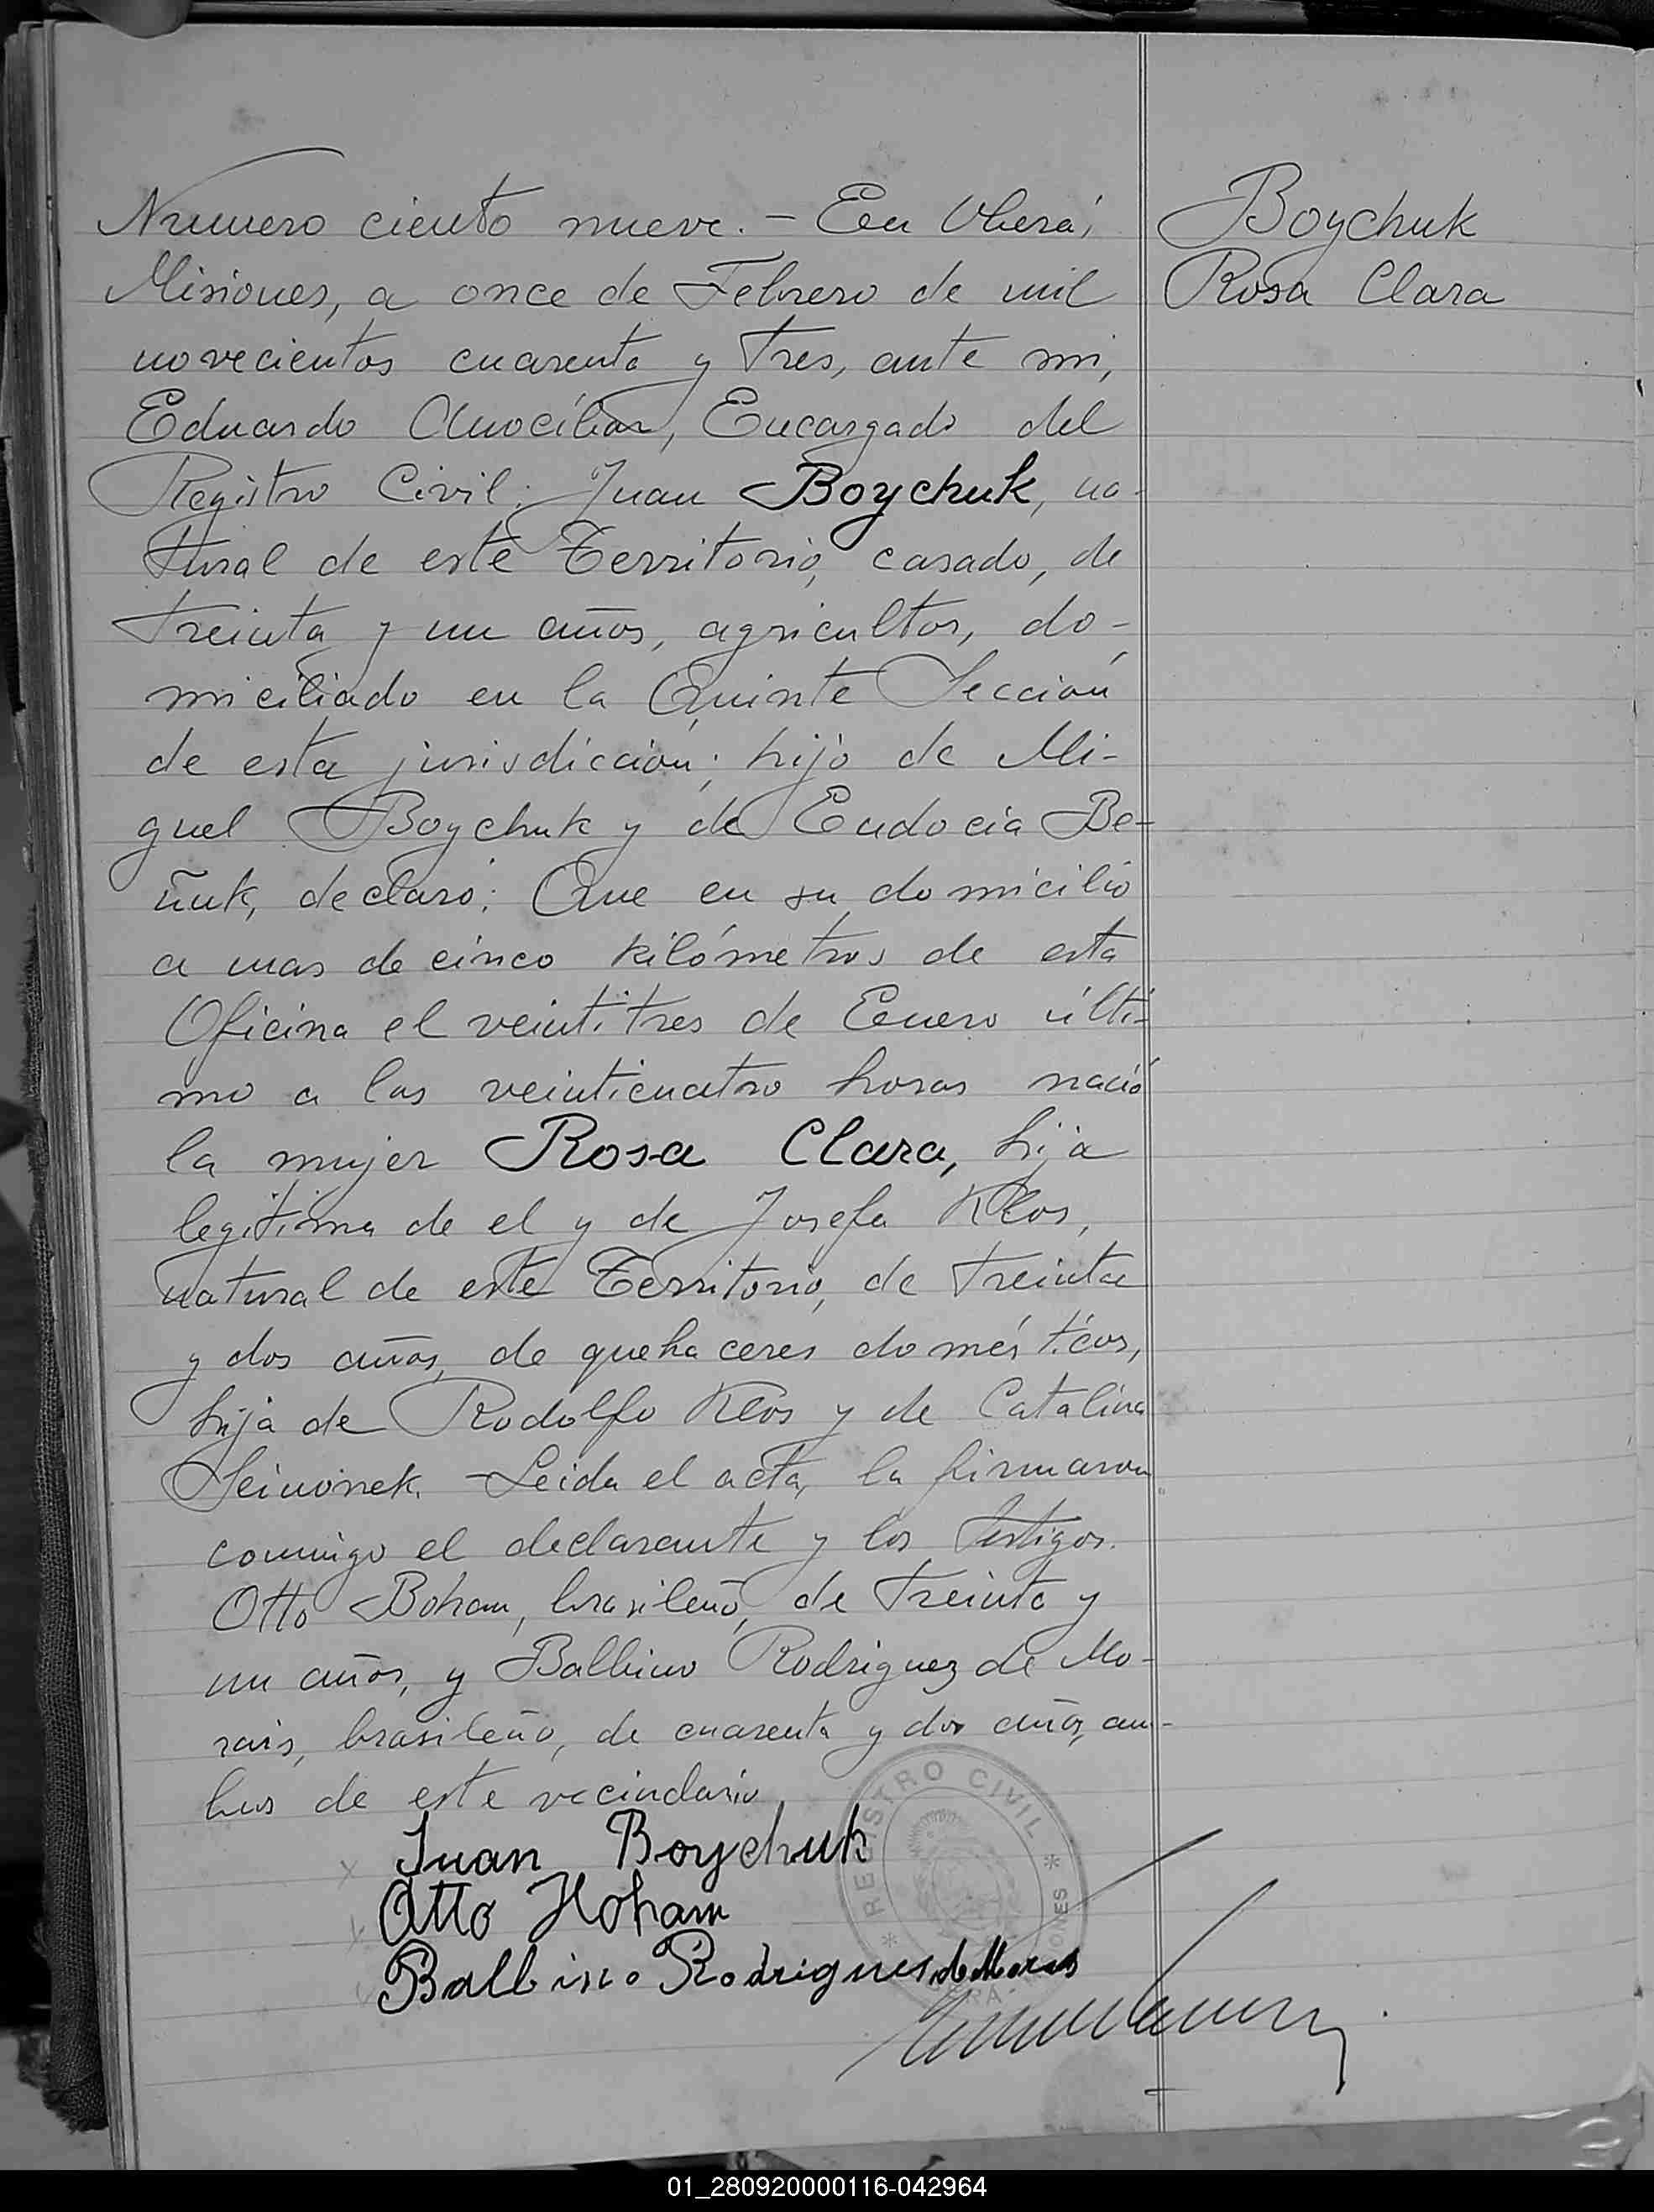 Numero ciento nueve. - En Oberá,
Misiones, a once de Febrero de mil
novecientos cuarenta y tres, ante mi,
Eduardo Encargado del
Registro Civil: Juan Boychuk, na-
tural de este Territorio, casado, de
treinta y un años, agricultor, do-
miciliado en la Quinta Sección
de esta jurisdicción; hijo de Mi-
guel Boychuk y de Eudocia Be-
ñuk, declaró: Que en su domicilio
a mas de cinco kilómetros de esta
Oficina el veintitres de Enero últi-
mo a las veinticuatro horas nació
la mujer Rosa Clara, hija
legitima de el y de Josefa Klos,
natural de este Territorio, de treinta
y dos años, de quehaceres domésticos,
hija de Rodolfo Klos y de Catalina
Leida el acta, la firmaron
conmigo el declarante y los testigos.
Otto Boham, brasileño, de treinta y
un años, y Balbino Rodriguez de Mo-
rais, brasileño, de cuarenta y dos años, am-
bos de este vecindario
Juan Boychuk
Otto Hoham
Balbino Rodrigues de Morais
REGISTRO CIVIL
Boychuk
Rosa Clara
01_280920000116-042964